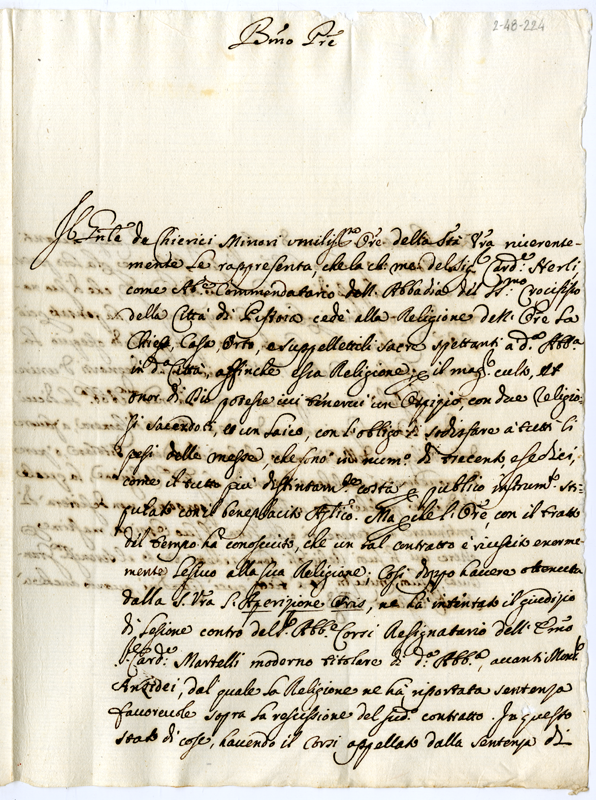 2-48-224
Bmo Pre
Il Gnle de Chierici Minori umiliss.mo Ore della Sta Vra riverente-
mente Le rappresenta, che la ch: me: del Sig.r Card.e Nerli
come Ab.e Commendatario dell'Abbadia del SS.mo Crocifisso
della Città di Pistoia cedè alla Religione dell'Ore La
Chiesa, Casa, Orto, e suppellettili sacre spettanti a d.a Abb.a
in d.a Città, affinche essa Religione, il magr culto, et
onor di Dio potesse ivi tenervi un Ospizio, con due Religio-
si Sacerdoti, et un Laico, con l'obligo di sodisfare a tutti li
pesi delle messe, che sono in num.o di trecento, e sedici,
come il tutto più distintam.te costa publico instrum.to sti-
pulato con il beneplacito Aplico. Ma che l'Ore con il tratto
del tempo ha conosciuto, che un tal contratto è riuscito enorme-
mente Lesivo alla sua Religione. Così doppo havere ottenuta
dalla S. Vra l'Aperizione Oris, ne ha intentato il giudizio
di Lesione contro del Abb.e Corsi Resignatario dell'Emo
Sig.r Card: Martelli moderno titolare di d.a Abb.a, avanti Mons.r
Ansidei, dal quale la Religione ne ha riportata sentenza
favorevole sopra la rescissione del sud.o contratto. In questo
stato di cose, havendo il Corsi appellato dalla sentenza di